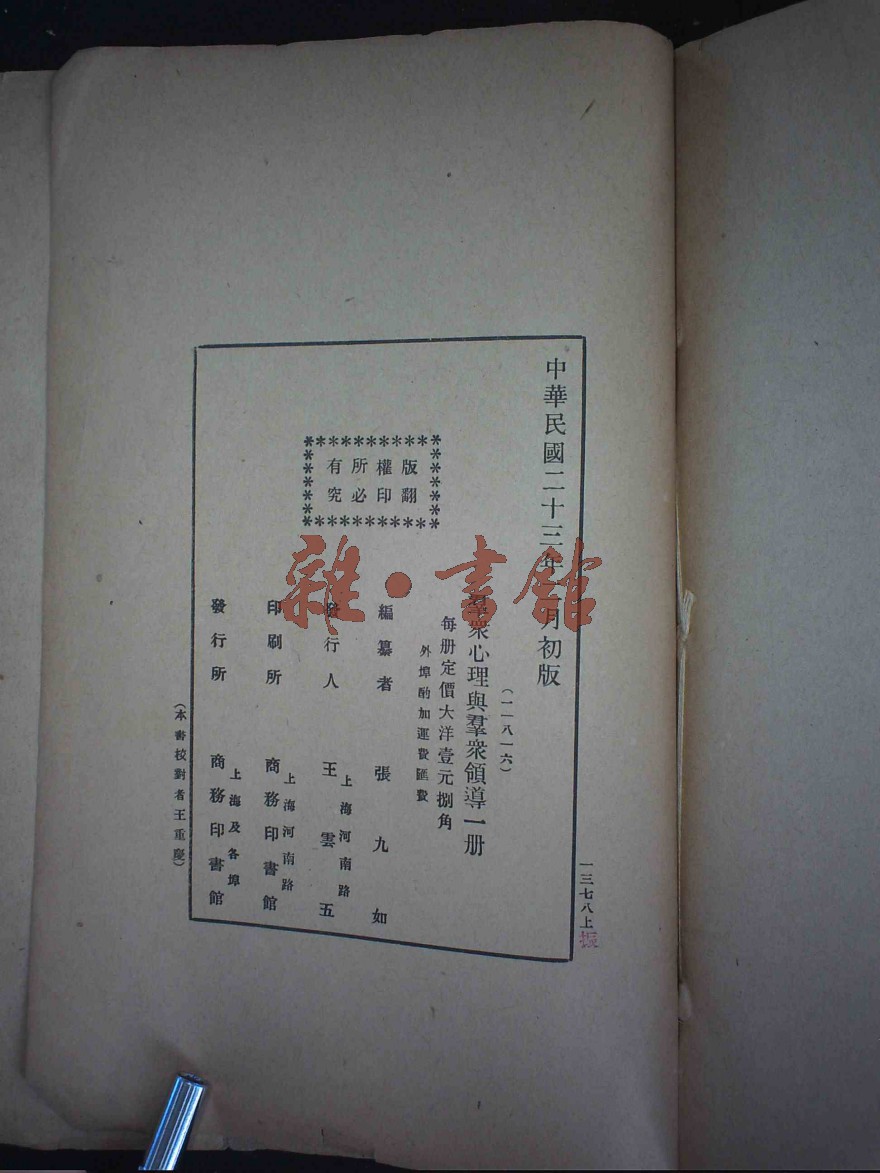 中華民國二十三年一月初版
(一一八一六)
羣衆心理與羣衆領導一册
每册定價大洋壹元捌角
外埠酌加運費匯費
版權所有
翻印必究
編纂者 張九如
上海河南路
發行人 王雲五
上海河南路
印刷所 商務印書館
上海及各埠
發行所 商務印書館
(本書校對者王重慶)
一三七八上
振
雜·書館